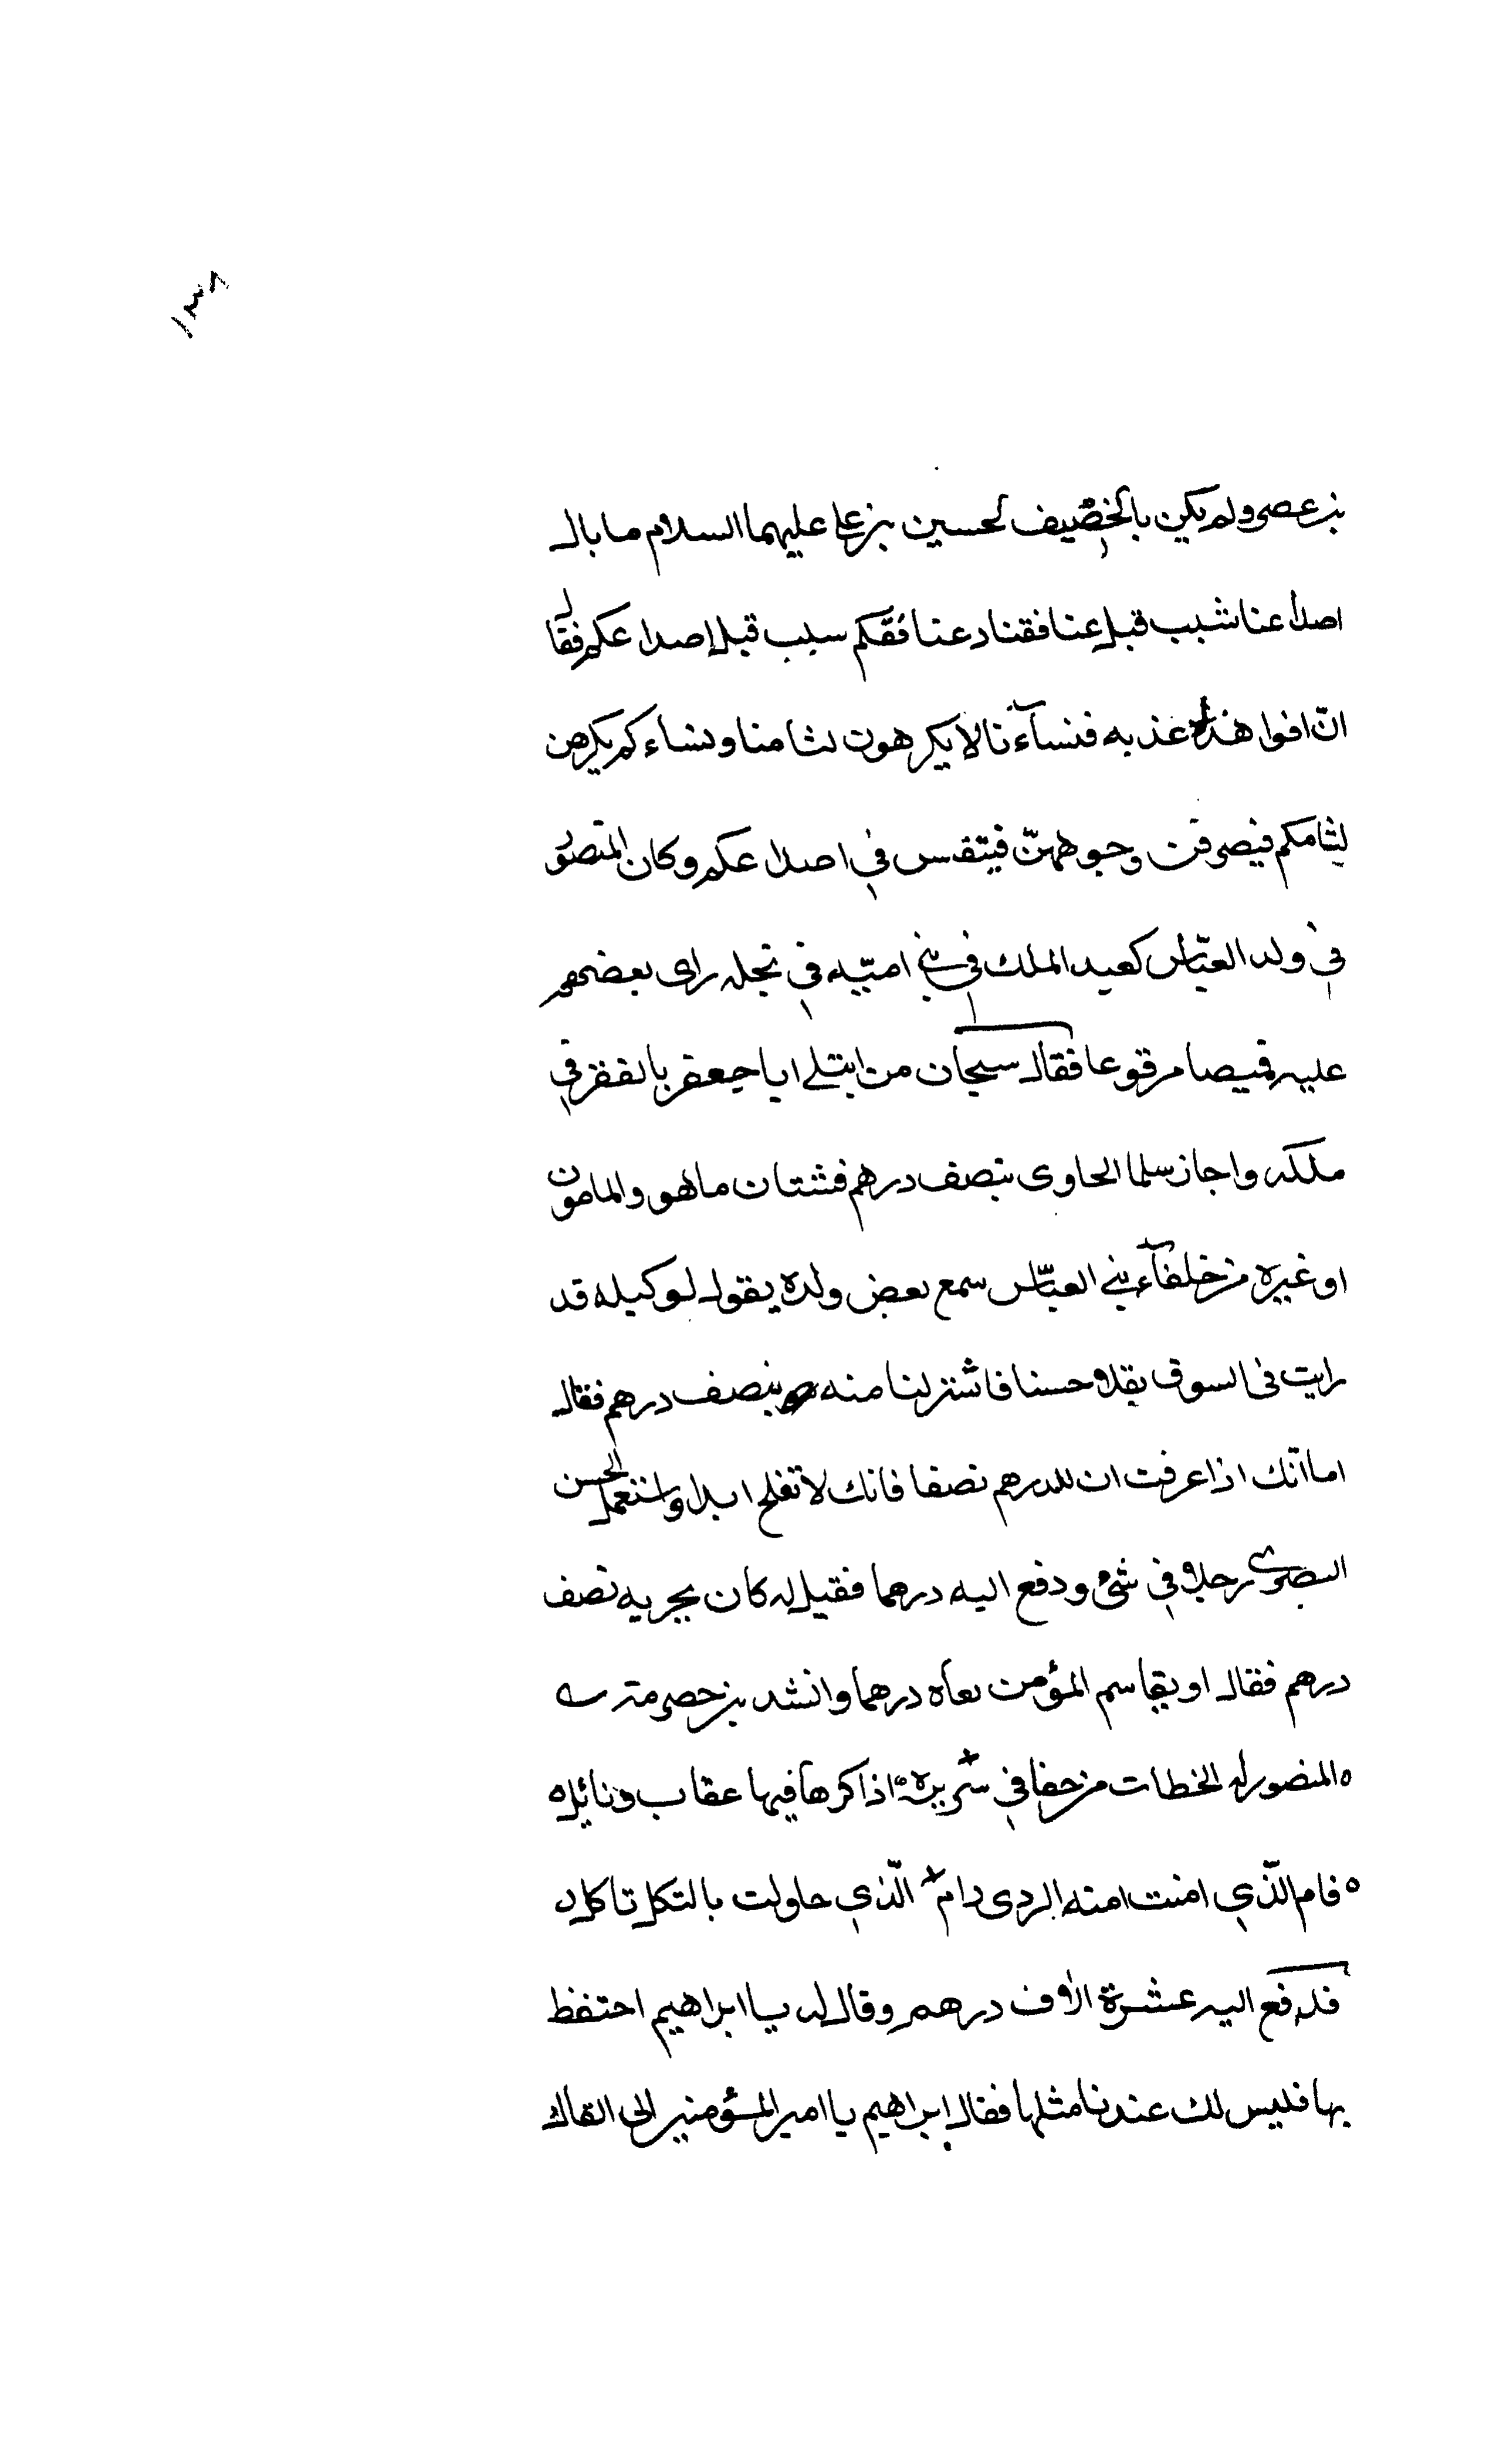 ١٣٨
بن عصى ولم يكن بالخصيف لحسين بن على عليهما السلام ما بال
اصداغنا شبب قبل عنافقنا دعنافقكم سبب قبل اصداغكم فقال
انّ افواهنا عذبه فنسآءنا لا يكرهون لثامنا ونساءكم يكرهن
لثامكم فيصرفن وجوههنّ فيتنفس في اصداغكم وكان المنصور
في ولد العبّاس كعبد الملك في بني اميّه في بخله راى بعضهم
عليه قميصا مرقوعا فقال سبحان من ابتلى ابا جعفر بالفقر في
ملكه واجاز سلما الحادى بنصف درهم فشتان ما هو والمامون
او غيره من خلفآء بني العبّاس سمع بعض ولده يقول لوكيله قد
رايت في السوق بقلا حسنا فاشتر لنا منه بنصف درهم فقال
اما انّك اذا عرفت ان للدرهم نصفا فانك لا تفلح ابدا واستعمل الحسن
البصرى رجلا في شئ ودفع اليه درهما فقيل له كان يجزيه نصف
درهم فقال او يقاسم المؤمن اخاه درهما وانشد بن
المنصور له لحظات من حفافي سريره اذا كرها فيها عقاب ونائل
فام الّذي امنت امنه الردى وام الّذي حاولت بالثكل ثاكل
فدفع اليه عشرة الاف درهم وقال له يا ابراهيم احتفظ
بها فليس لك عندنا مثلها فقال ابراهيم يا امير المؤمنين الى القاك